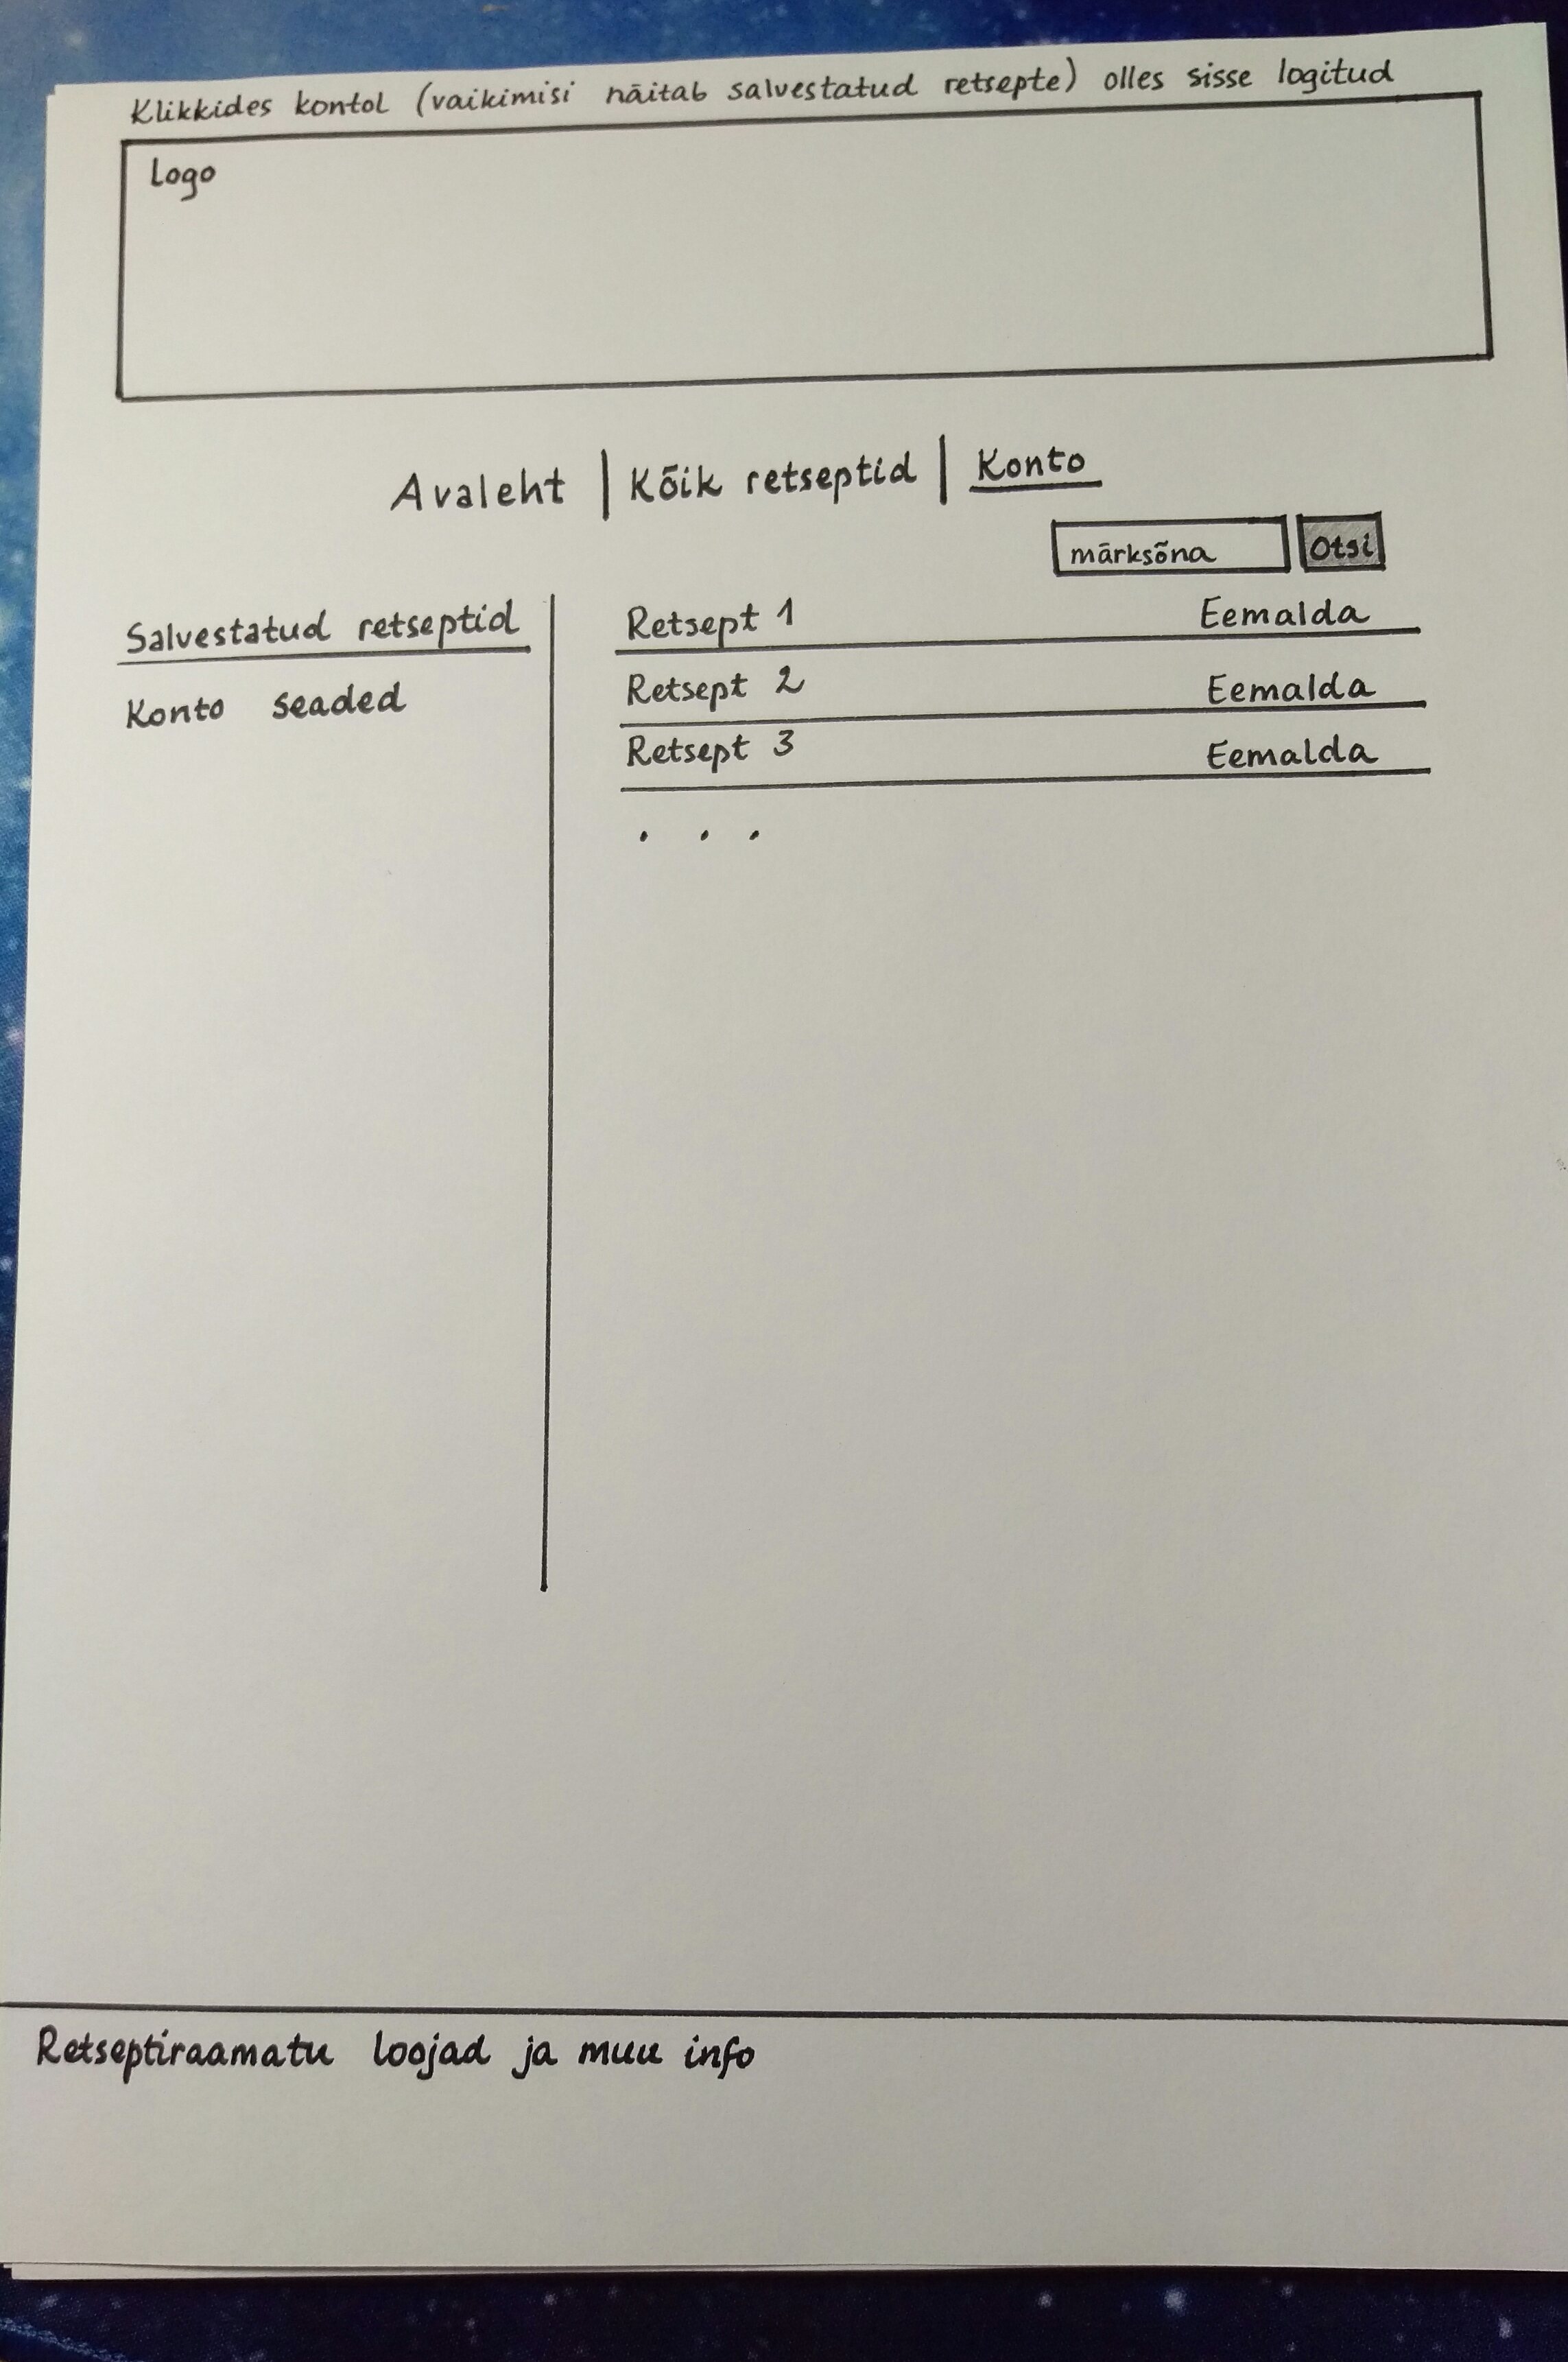 Klikkides kontol (vaikimisi näitab salvestatud retsepte) olles sisse logitud
Logo
Avaleht | Kõik retseptid | Konto
märksõna Otsi
Salvestatud retseptid
Konto seaded
Retsept 1 Eemalda
Retsept 2 Eemalda
Retsept 3 Eemalda
. . .
Retseptiraamatu loojad ja muu info